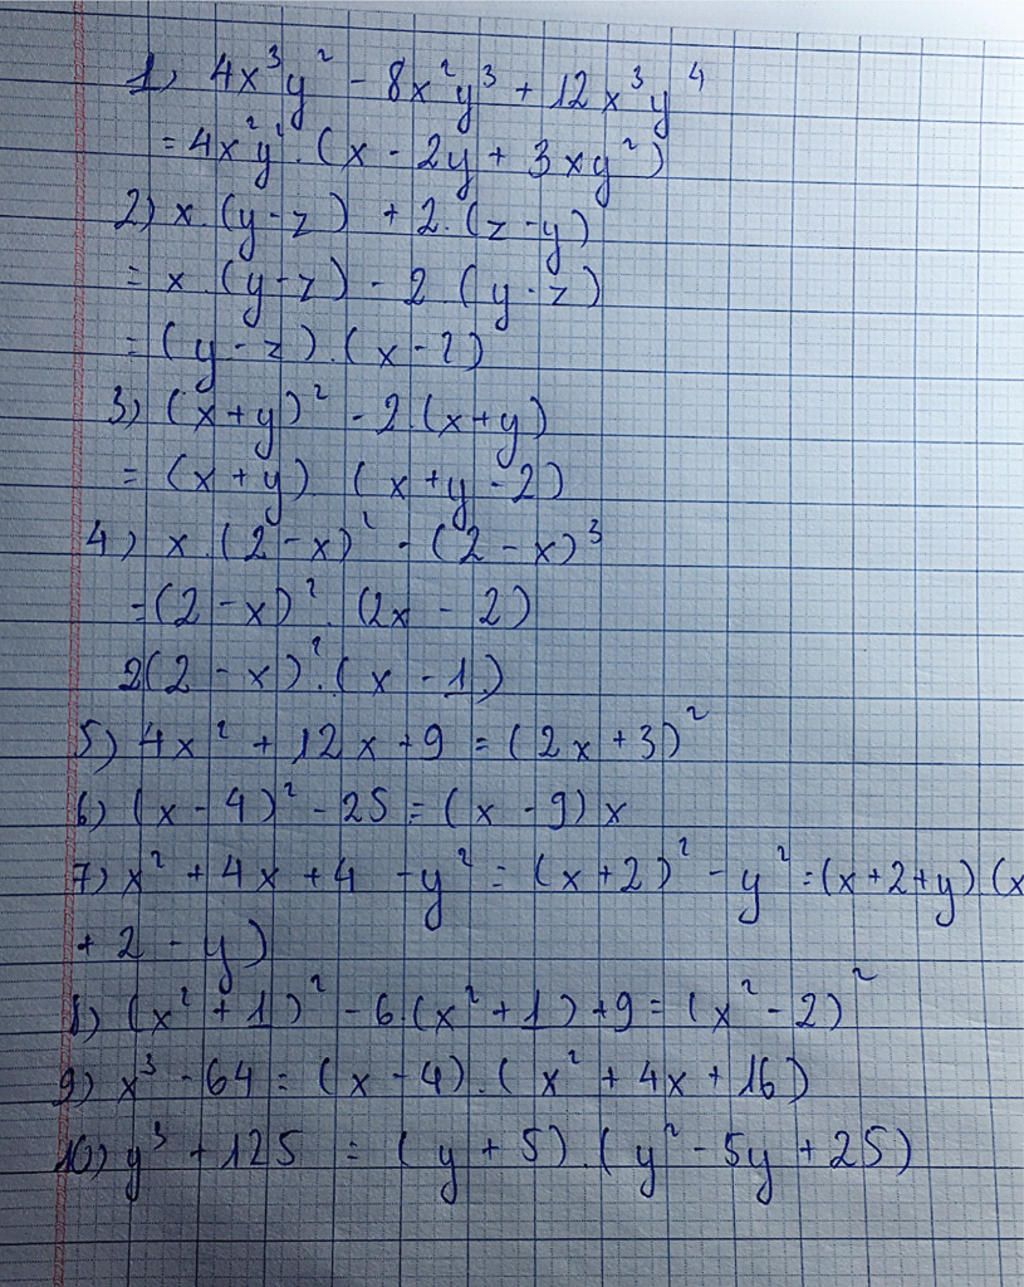 1) 4x³y² - 8x²y³ + 12x³y⁴
= 4x²y² . (x - 2y + 3xy²)
2) x.(y-z) + 2.(z-y)
= x.(y-z) - 2.(y-z)
= (y-z).(x-2)
3) (x+y)² - 2.(x+y)
= (x+y).(x+y-2)
4) x.(2-x)² - (2-x)³
= (2-x)².(2x - 2)
2(2-x)².(x - 1)
5) 4x² + 12x + 9 = (2x+3)²
6) (x-4)² - 25 = (x - 9)x
7) x² + 4x + 4 - y² = (x+2)² - y² = (x+2+y)(x
+ 2 - y)
8) (x²+1)² - 6.(x²+1) + 9 = (x² - 2)²
9) x³ - 64 = (x - 4).(x² + 4x + 16)
10) y³ + 125 = (y + 5).(y² - 5y + 25)